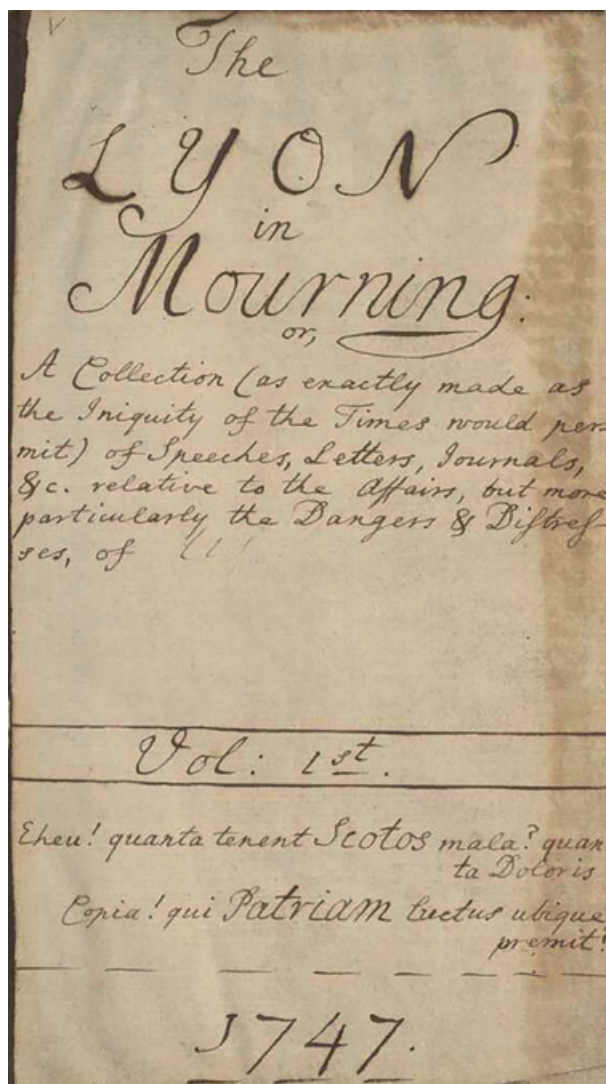 The
LYON
in
Mourning:
or,
A Collection (as exactly made as
the Iniquity of the Times would per-
mit) of Speeches, Letters, Journals,
&c. relative to the Affairs, but more
particularly the Dangers & Distreſ-
ses, of
Vol: 1st.
Eheu! quanta tenent Scotos mala? quan
ta Doloris
Copia! qui Patriam luctus ubique
premit!
1747.